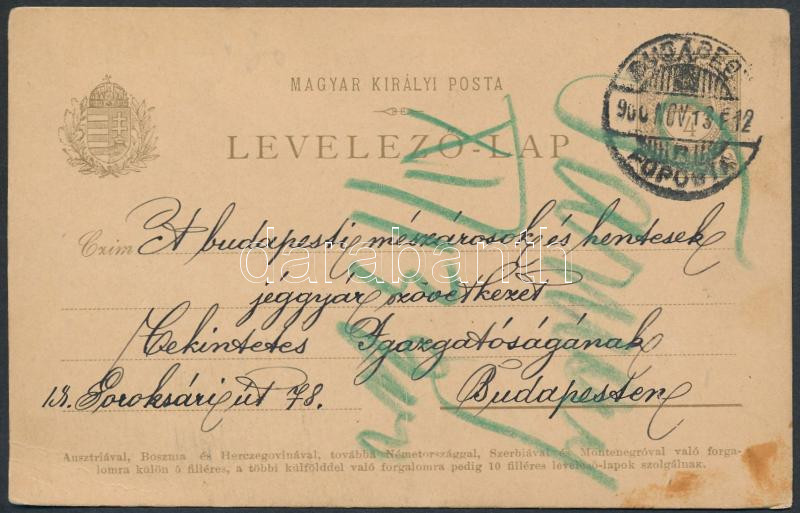 MAGYAR KIRÁLYI POSTA
LEVELEZŐ-LAP
BUDAPEST
900 NOV 13 E 12
FŐPOSTA
4
Czim A budapesti mészárosok és hentesek
jéggyár szövetkezet
Tekintetes Igazgatóságának
IX. Soroksári út 78. Budapesten
Ausztriával, Bosznia és Herczegovinával, továbbá Németországgal, Szerbiával és Montenegróval való forga-
lomra külön 5 filléres, a többi külfölddel való forgalomra pedig 10 filléres levelező-lapok szolgálnak.
darabanth